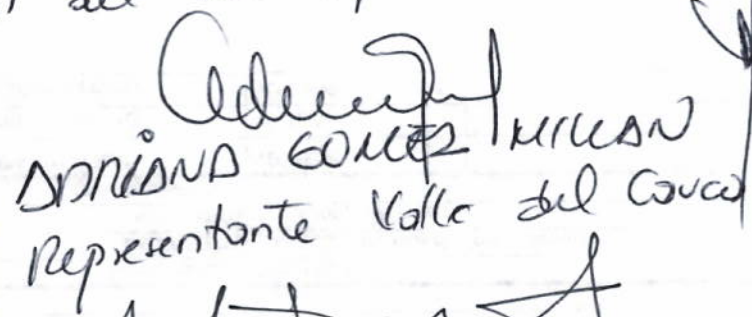 ADRIANA GOMEZ MILLAN
Representante Valle del Cauca